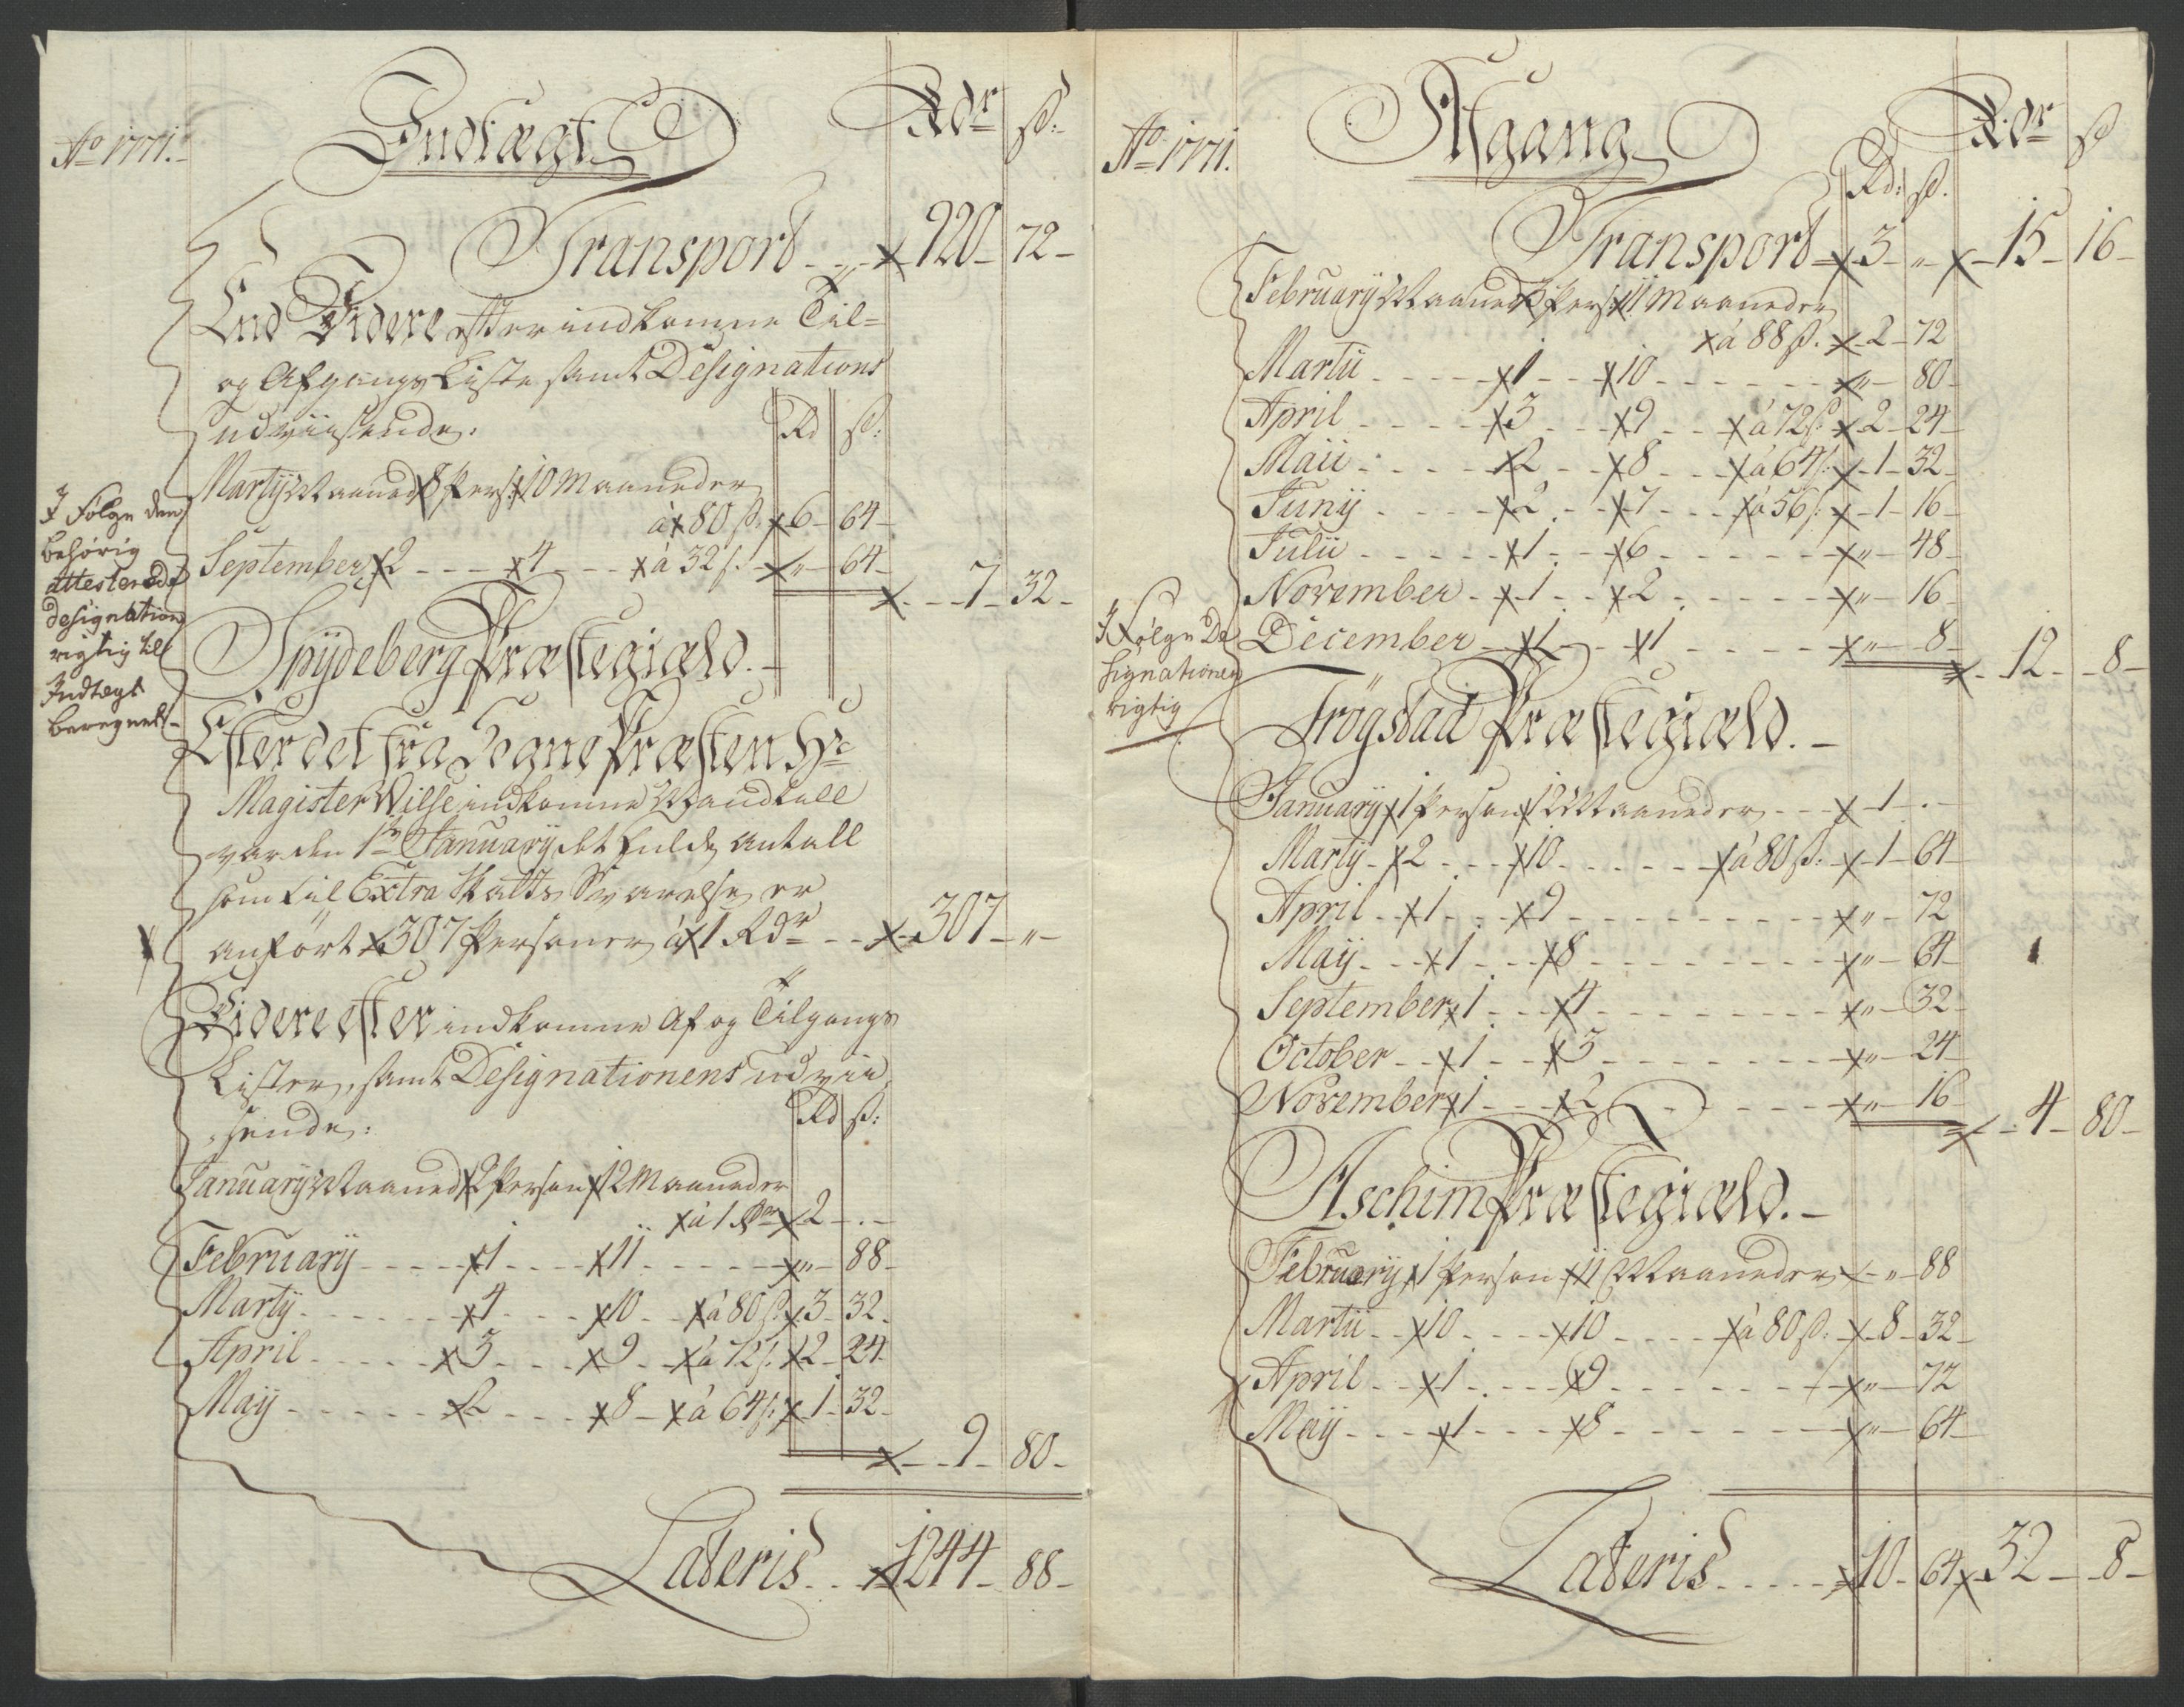 Ao 1771.
Indtægt
Rdr ß:
Transport - - - 920 - 72 -
End Videre efter indkomne Til=
og Afgangs Liste samt Designations
udviisende.
Rd ß:
Martij Maaned 8 Pers: 10 Maaneder
á 80 ß. 6 - 64 -
September 2 - - - 4 - - - á 32 ß. - " - 64 -
- - 7 - 32 -
I Følge den
behørig
attesterede
designation
rigtig till
Indtægt
beregnet -
Spydeberg Præstegiæld. -
Efter det fra Sogne Præsten Hr
Magister Wilse indkomne Mandtall
var den 1te January det fulde antall
som til Extra Skatts Svarelse er
anført 307 Personer á 1 Rdr - - 307 - " -
Videre efter indkomne Af og Tilgangs
Lister, samt Designationens udvii
sende:
Rd ß:
January Maaned 2 Person 12 Maaneder
á 1 Rdr 2 - . -
February - - - - 1 - - - - 11 - - - - - - " - 88 -
Marty - - - - - - 4 - - - - 10 - - á 80 ß. 3 - 32 -
April - - - - - 3 - - - 9 - - á 72 ß. 2 - 24 -
Maij - - - - - 2 - - - 8 - á 64 ß: 1 - 32 -
- - 9 - 80 -
Lateris - - - 1244 - 88 -
Ao 1771.
Afgang
Rdr ß
Rd: ß.
Transport - 3 - " - 15 - 16 -
February Maaned 3 Pers: 11 Maaneder
á 88 ß. - 2 - 72
Martii - - - - 1 - - - 10 - - - - - - - " - 80 -
April - - - - 3 - - - 9 - - á 72 ß. 2 - 24 -
Maii - - - - 2 - - 8 - - - á 64 ß. - 1 - 32 -
Junij - - - - 2 - - 7 - - - á 56 ß. - 1 - 16 -
Julii - - - - - 1 - - 6 - - - - - - - " - 48 -
November - - 1 - - 2 - - - - - - " - 16 -
December - - 1 - - 1 - - - - - - " - 8 -
- 12 - - 8 -
I Følge De
signationen
rigtig
Trögstad Præstegiæld. -
January 1 Person 12 Maaneder - - - 1 - . -
Marty - 2 - - - 10 - - - - - - á 80 ß. - 1 - 64
April - - 1 - - - 9 - - - - - - - - - " - 72
Maij - - - 1 - - - 8 - - - - - - - - - " - 64
September 1 - - - 4 - - - - - - - - " - 32 -
October - - 1 - - - 3 - - - - - - - - " - 24
November 1 - - - 2 - - - - - - - " - 16 -
- - 4 - 80 -
Aschim Præstegiæld. -
February 1 Person 11 Maaneder - " - 88
Martii - - 10 - - - - 10 - - - - á 80 ß. - 8 - 32 -
April - - 1 - - - - 9 - - - - - - - - " - 72
Maij - - - 1 - - - - 8 - - - - - - - " - 64 -
Lateris - - - - - 10 - 64 32 - - 8 -